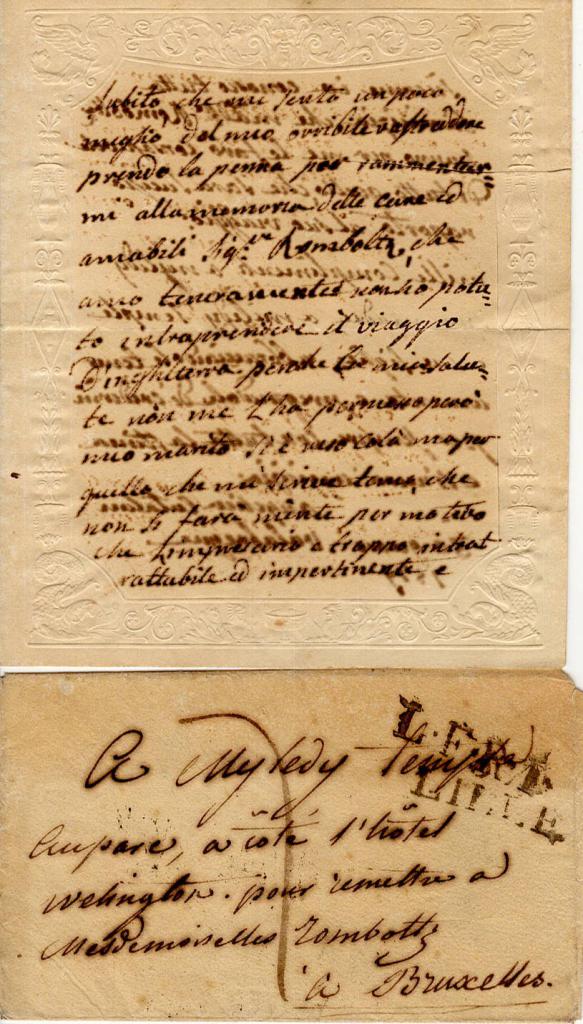 Subito che mi sento un poco
meglio del mio orribile raffreddore
prendo la penna per rammentar=
mi alla memoria delle care ed
amabili Sig.re Rombotti, che
amo teneramente non ho potu=
to intraprendere il viaggio
D'inghilterra perche la mia salu=
te non me l'ha permesso pero
mio marito si è reso colà ma per
quello che mi scrive teme, che
non si farà niente per motivo
che l'impresario e troppo intrat
rattabile ed impertinente e
A Myledy
au parc, a coté l'hôtel
Welington. pour remettre a
Mesdemoiselles Rombotti
a Bruxelles.
LILLE